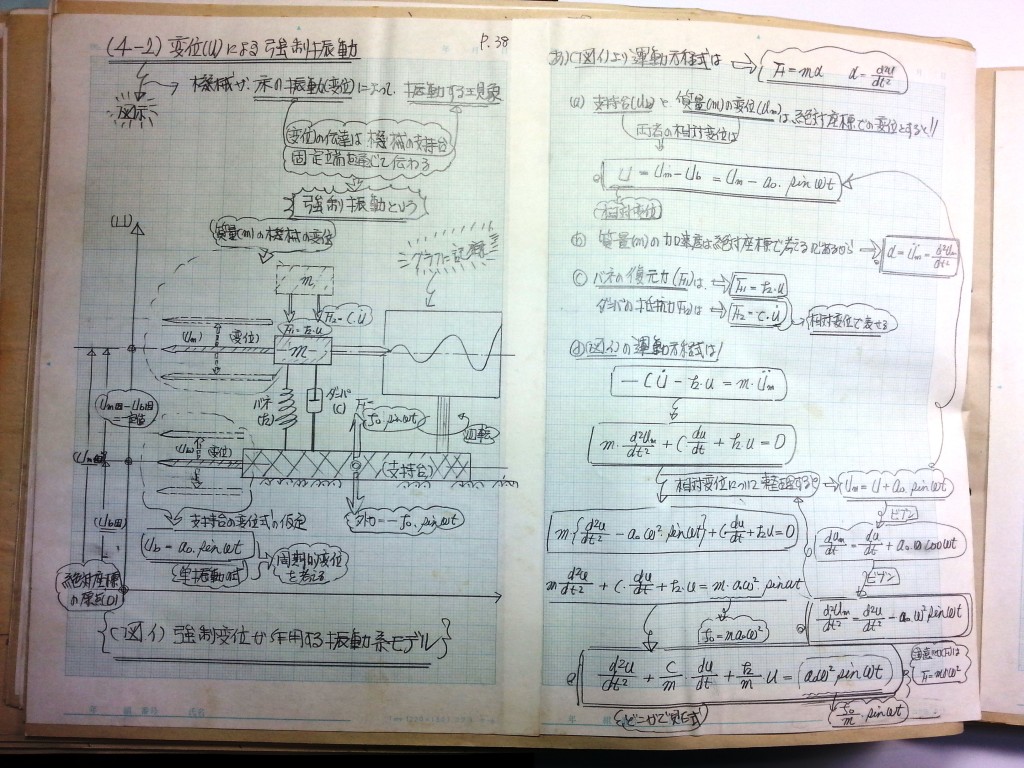 (4-2) 変位(u)による強制振動
P.38
図示
機械が、床の振動(変位)によって、振動する現象
変位の伝達は機械の支持台
固定端を通じて伝わる
強制振動という
(u)
質量(m)の機械の変位
グラフに記録
m
F₁=k·u
F₂=C·u̇
(Um)
変位
m
バネ
(k)
ダンパ
(C)
f₀·sinωt
回転
(Ub)
変位
(支持台)
支持台の変位式の仮定
Ub = a₀·sinωt
単振動
周期的変位
を考える
外力=-f₀·sinωt
絶対座標
の原点(0)
(図イ) 強制変位が作用する振動系モデル
(図イ)より運動方程式は
F=mα α=d²u/dt²
(a) 支持台(Ub)と質量(m)の変位(Um)は、絶対座標での変位とすると!!
両者の相対変位は
U = Um-Ub = Um - a₀·sinωt
相対変位
(b) 質量(m)の加速度は絶対座標で考えるのであるから
α=Üm=d²Um/dt²
(c) バネの復元力(F₁)は、
F₁=k·u
ダンパの抵抗力(F₂)は
F₂=C·u̇
相対変位で表せる
(d)(図イ)の運動方程式は!
-Cu̇-k·u=m·Üm
m·d²Um/dt²+C du/dt+k·u=0
相対変位について整理すると
Um=U+a₀·sinωt
ビブン
m{d²u/dt²-a₀ω²·sinωt}+C·du/dt+k·u=0
dum/dt=du/dt+a₀·ωcosωt
ビブン
m d²u/dt²+C·du/dt+k·u=m·a₀ω²·sinωt
d²Um/dt²=d²u/dt²-a₀ω²sinωt
f₀=ma₀ω²
d²u/dt²+C/m·du/dt+k/m·u=a₀ω²·sinωt
f₀/m·sinωt
年 組 番号 氏名
年 組